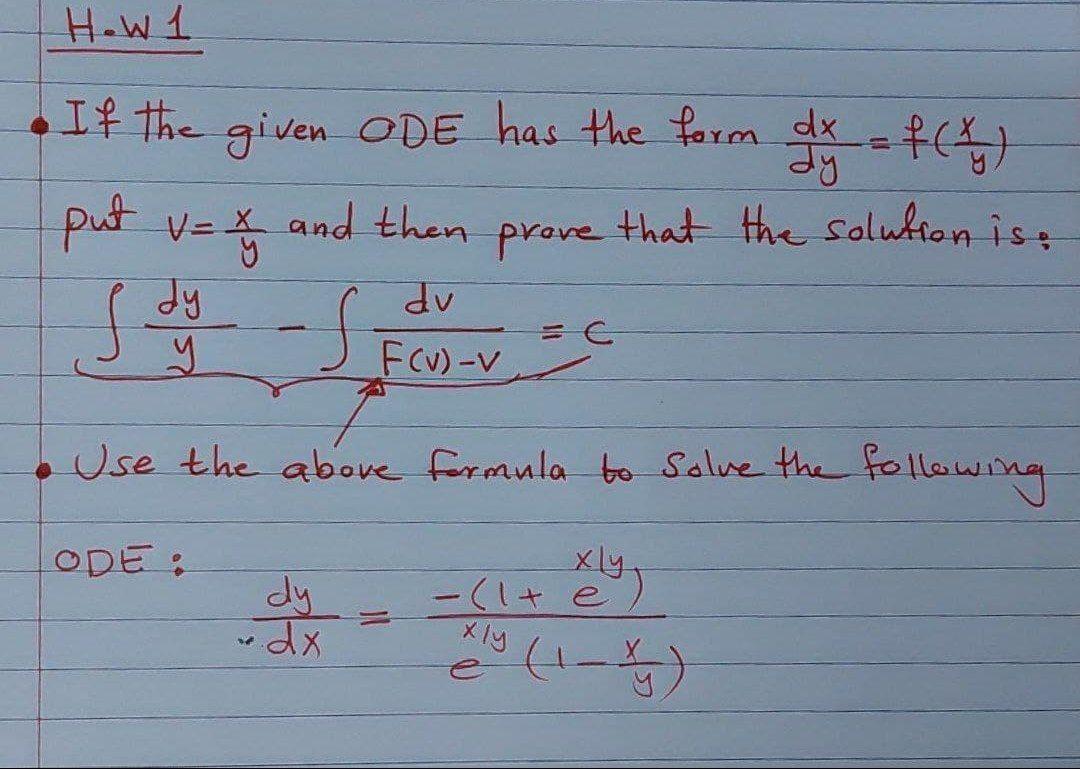 H.W 1
• If the given ODE has the form dx/dy = f(x/y)
put v = x/y and then prove that the solution is:
∫ dy/y - ∫ dv/(F(v)-v) = c
• Use the above formula to solve the following
ODE:
dy/dx = -(1 + e^(x/y)) / (e^(x/y) (1 - x/y))